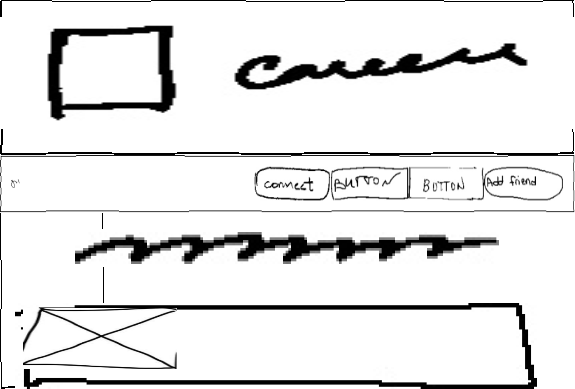 Career
connect BUTTON BUTTON Add friend